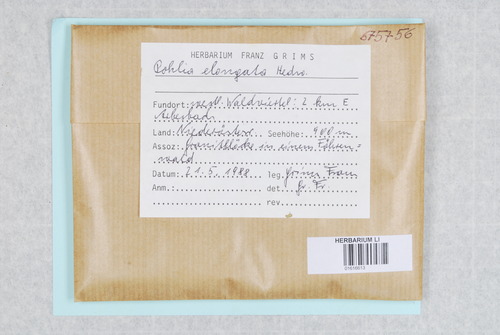 675756
HERBARIUM FRANZ GRIMS
Pohlia elongata Hedw.
Fundort: westl. Waldviertel: 2 km E
Land: Niederösterr. Seehöhe: 900 m
Assoz: Granitblöcke in einem Föhren=
wald
Datum: 21.5.1980 leg. Grims Franz
Anm.: det. Gr. Fr.
rev.
HERBARIUM LI